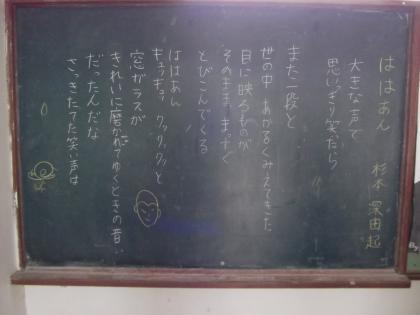 ははあん
杉本 深由起
大きな声で
思いっきり笑ったら
また一段と
世の中 あかるくみえてきた
目に映るものが
そのまま まっすぐ
とびこんでくる
ははあん
キュッキュッ クックックッと
窓ガラスが
きれいに磨かれてゆくときの音
だったんだな
さっきたてた笑い声は